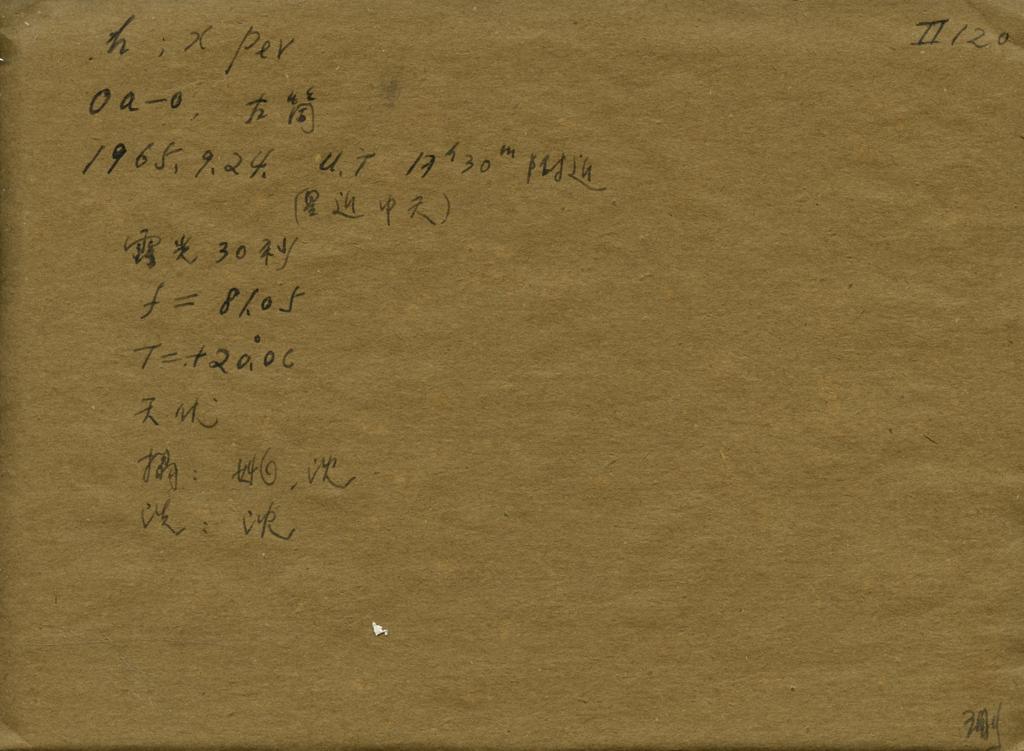 II 120
h; χ per
Oa-O, 左筒
1965.9.24. U.T 17ʰ30ᵐ附近
(星近中天)
露光30秒
f = 81.05
T=+20°.0C
天优
摄: 姚, 沈
洗: 沈